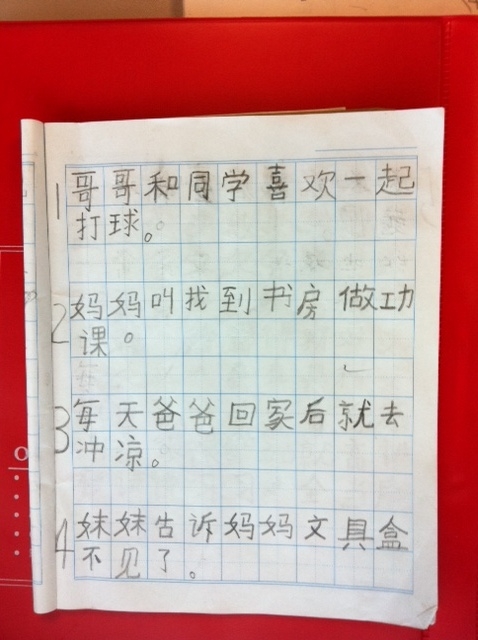 1 哥哥和同学喜欢一起
打球。
2 妈妈叫找到书房做功
课。
3 每天爸爸回家后就去
冲凉。
4 妹妹告诉妈妈文具盒
不见了。